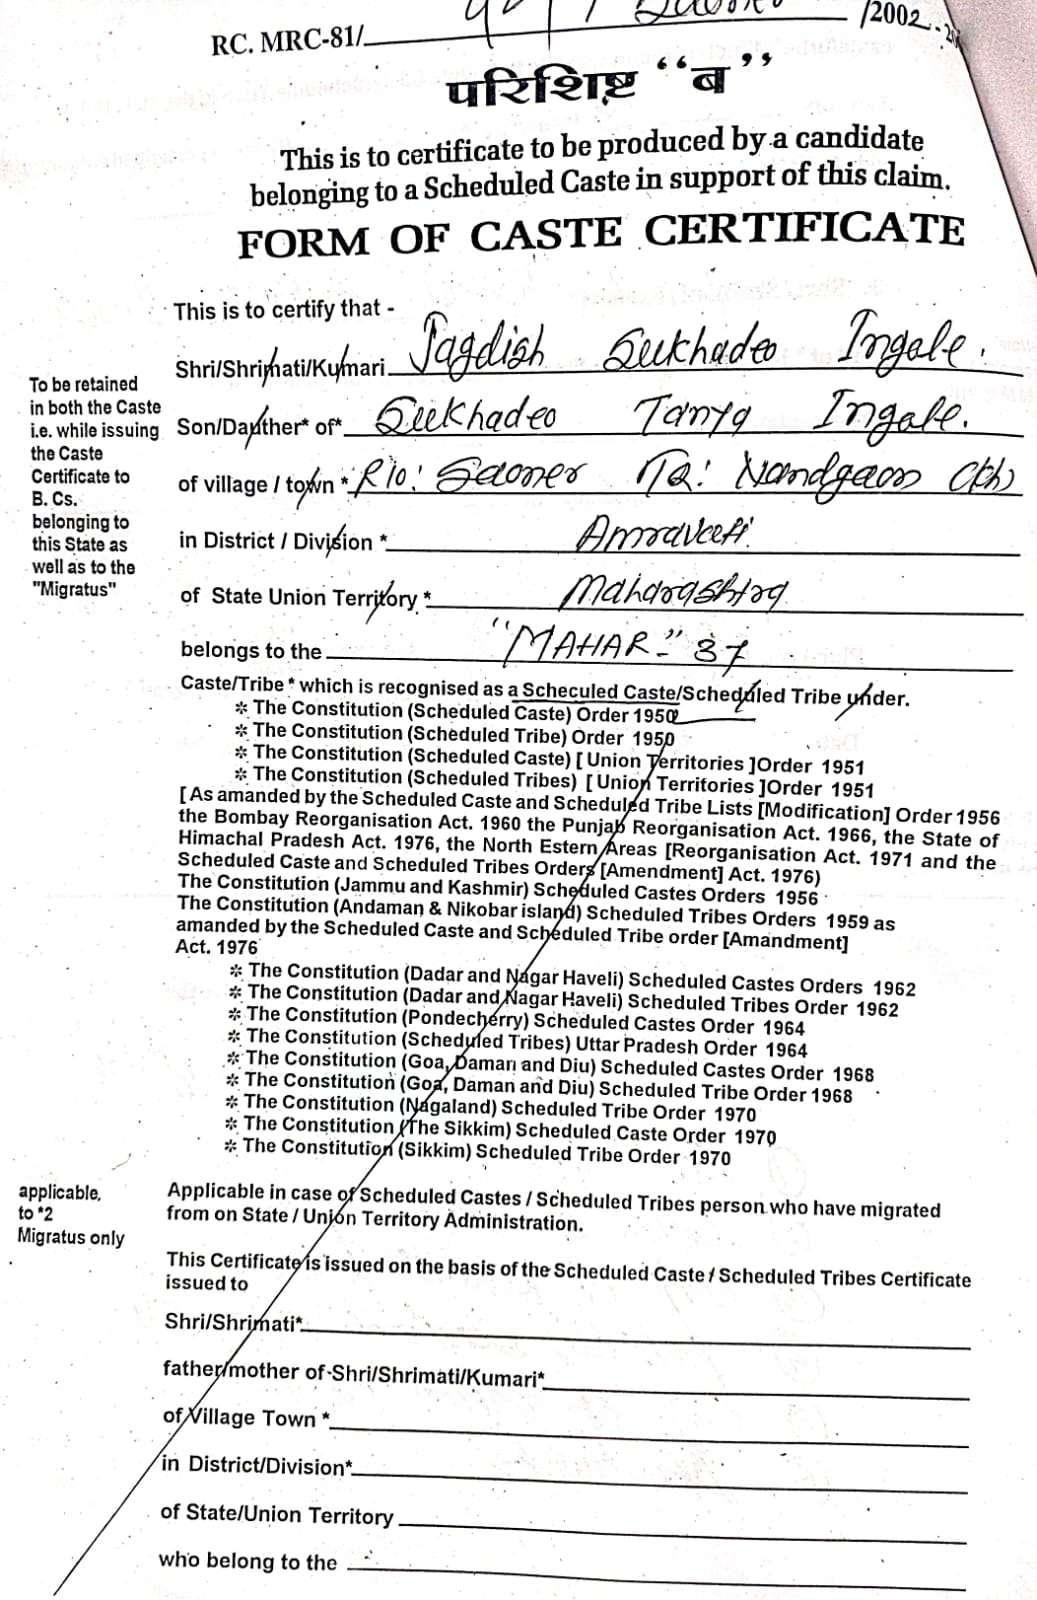 RC. MRC-81/ /2002
परिशिष्ट “ब”
This is to certificate to be produced by a candidate
belonging to a Scheduled Caste in support of this claim.
FORM OF CASTE CERTIFICATE
This is to certify that -
Shri/Shrimati/Kumari Jagdish Sukhadeo Ingale.
To be retained
in both the Caste
i.e. while issuing
the Caste
Certificate to
B. Cs.
belonging to
this State as
well as to the
"Migratus"
Son/Dauther* of* Sukhadeo Tanya Ingale.
of village / town * R/o: Saoner Tq: Nandgaon (Kh)
in District / Division * Amravati.
of State Union Territory * Maharashtra
belongs to the "MAHAR-" 37
Caste/Tribe* which is recognised as a Scheculed Caste/Scheduled Tribe under.
* The Constitution (Scheduled Caste) Order 1950
* The Constitution (Scheduled Tribe) Order 1950
* The Constitution (Scheduled Caste) [ Union Territories ]Order 1951
* The Constitution (Scheduled Tribes) [ Union Territories ]Order 1951
[ As amanded by the Scheduled Caste and Scheduled Tribe Lists [Modification] Order 1956
the Bombay Reorganisation Act. 1960 the Punjab Reorganisation Act. 1966, the State of
Himachal Pradesh Act. 1976, the North Estern Areas [Reorganisation Act. 1971 and the
Scheduled Caste and Scheduled Tribes Orders [Amendment] Act. 1976)
The Constitution (Jammu and Kashmir) Scheduled Castes Orders 1956
The Constitution (Andaman & Nikobar island) Scheduled Tribes Orders 1959 as
amanded by the Scheduled Caste and Scheduled Tribe order [Amandment]
Act. 1976
* The Constitution (Dadar and Nagar Haveli) Scheduled Castes Orders 1962
* The Constitution (Dadar and Nagar Haveli) Scheduled Tribes Order 1962
* The Constitution (Pondecherry) Scheduled Castes Order 1964
* The Constitution (Scheduled Tribes) Uttar Pradesh Order 1964
* The Constitution (Goa, Daman and Diu) Scheduled Castes Order 1968
* The Constitution (Goa, Daman and Diu) Scheduled Tribe Order 1968
* The Constitution (Nagaland) Scheduled Tribe Order 1970
* The Constitution (The Sikkim) Scheduled Caste Order 1970
* The Constitution (Sikkim) Scheduled Tribe Order 1970
applicable,
to *2
Migratus only
Applicable in case of Scheduled Castes / Scheduled Tribes person who have migrated
from on State / Union Territory Administration.
This Certificate is issued on the basis of the Scheduled Caste / Scheduled Tribes Certificate
issued to
Shri/Shrimati*
father/mother of Shri/Shrimati/Kumari*
of Village Town *
in District/Division*
of State/Union Territory
who belong to the